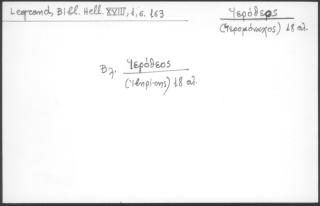 Legrand, Bibl. Hell. XVIII, 1, σ. 163
Ἱερόθεος
(Ἱερομόναχος) 18 αἰ.
Βλ. Ἱερόθεος
(Ἰβηρίτης) 18 αἰ.